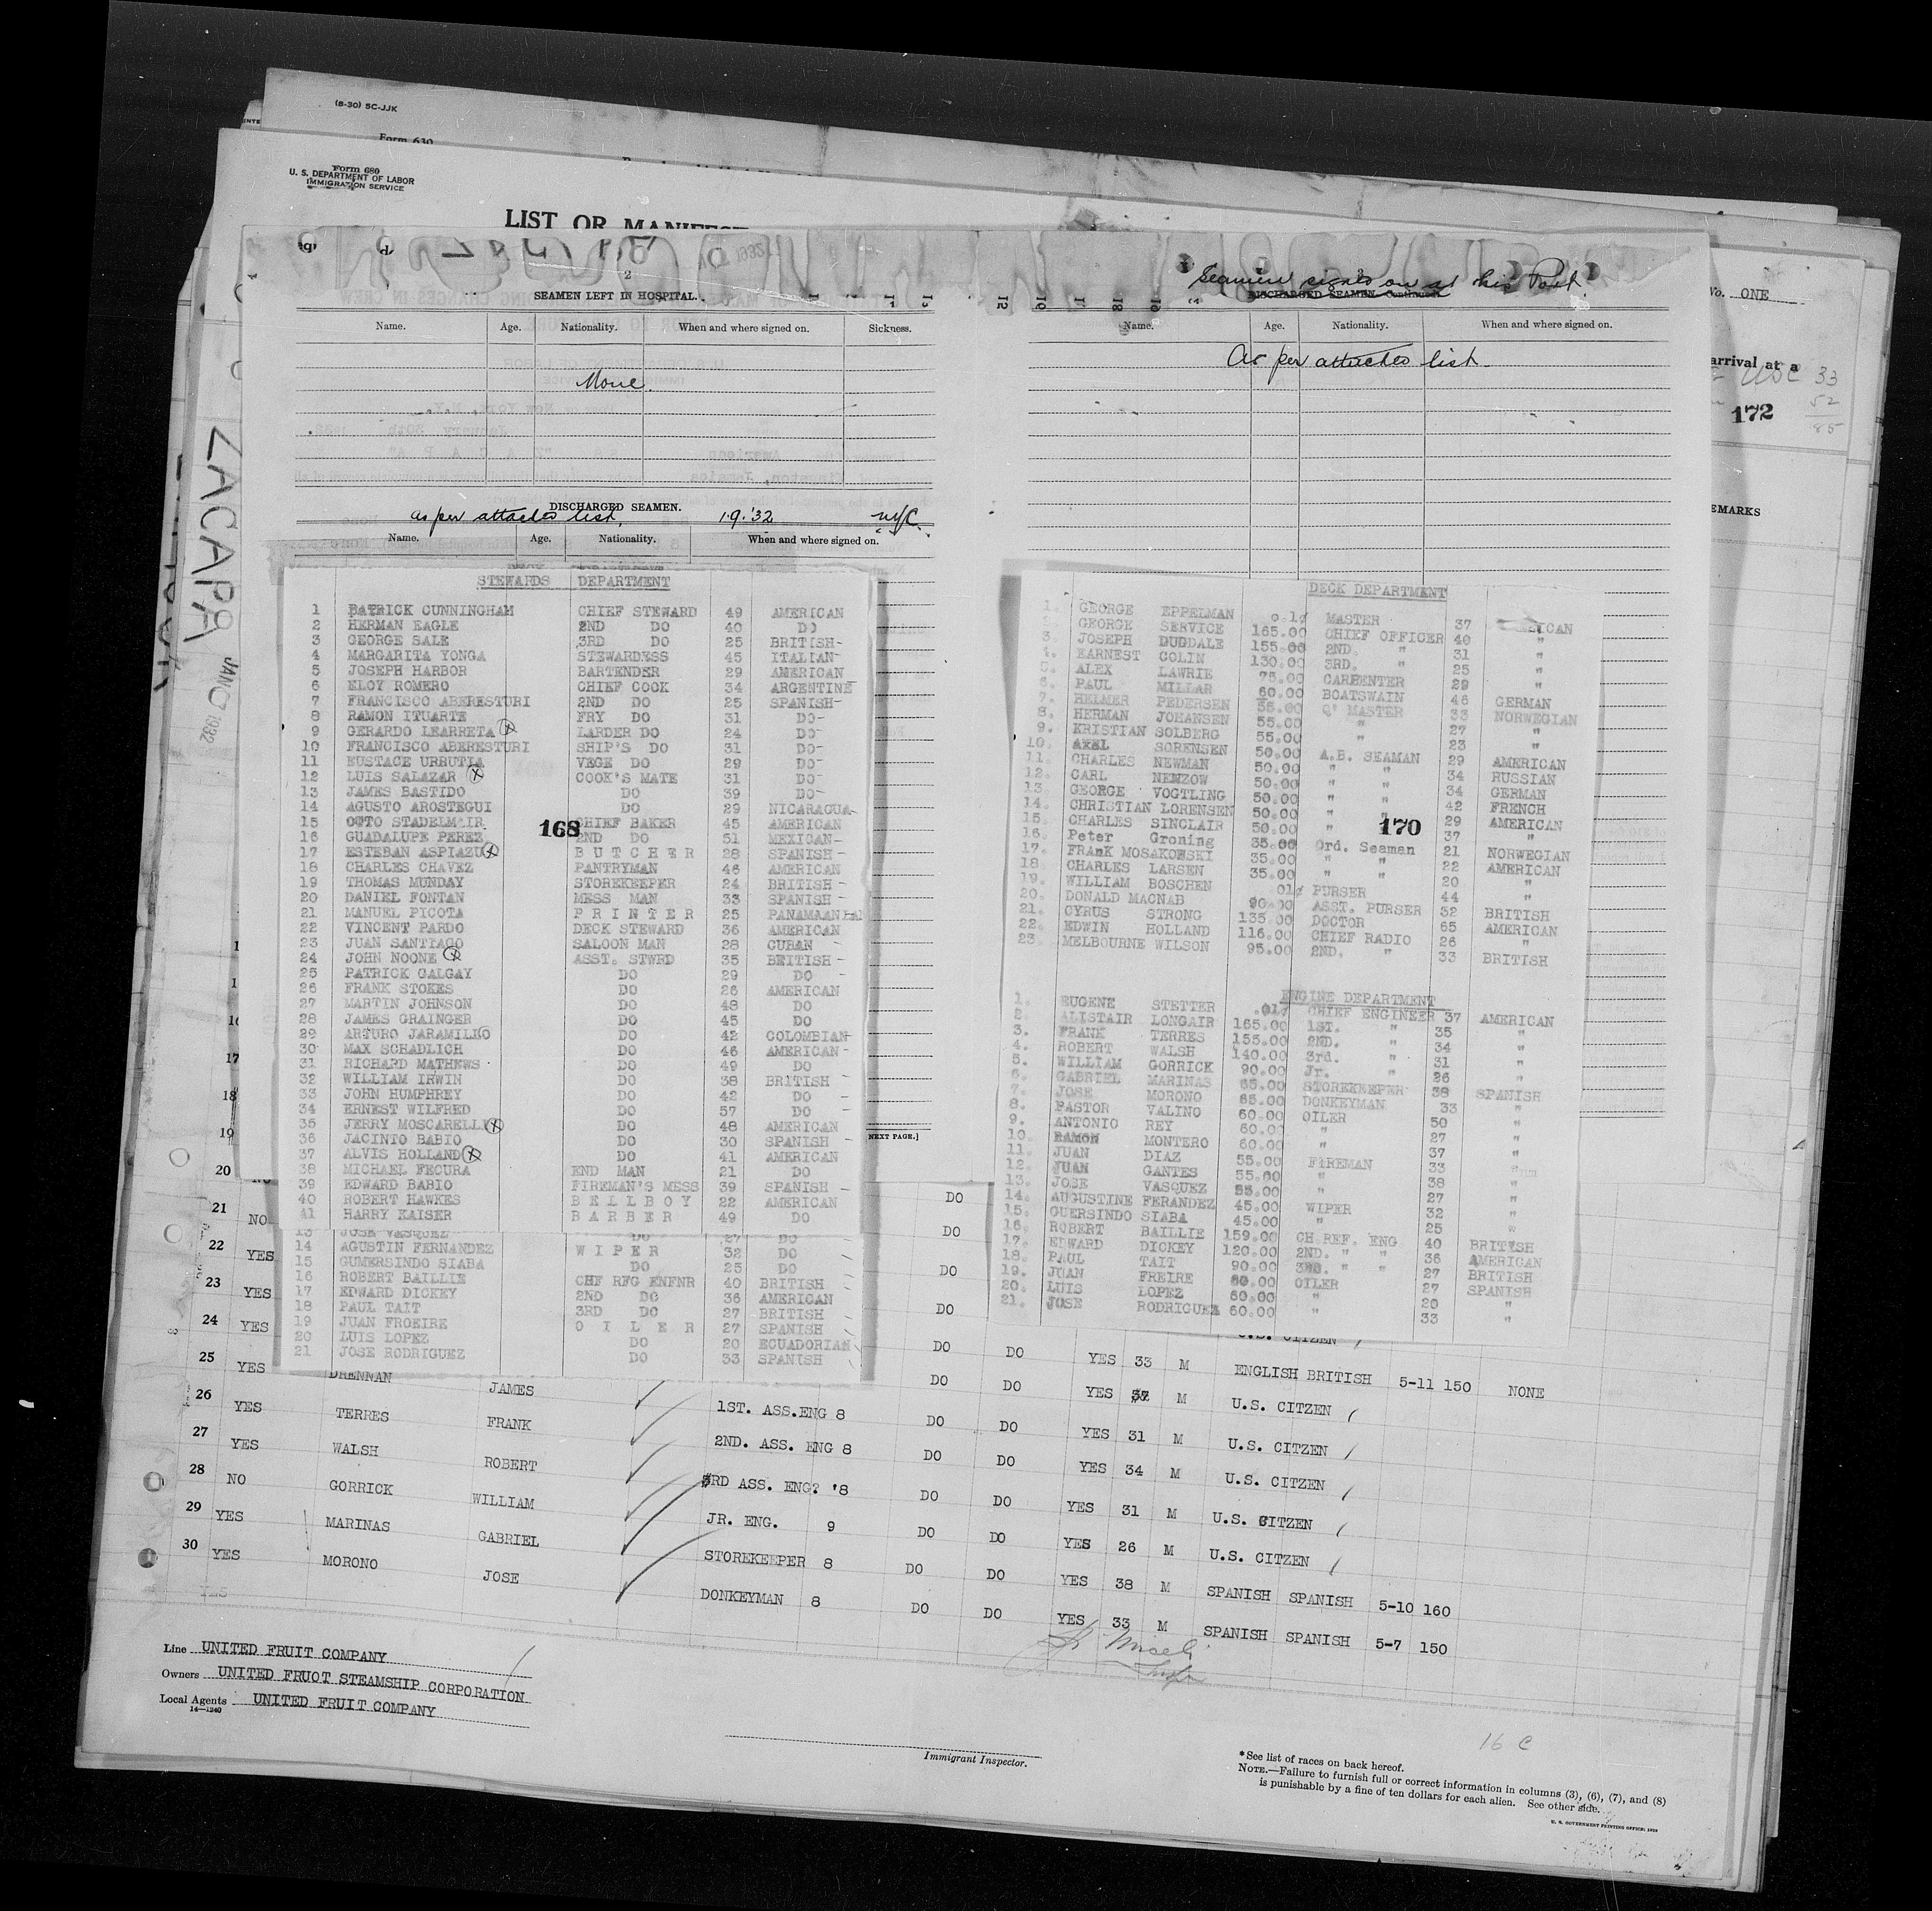 (8-30) 5C-JJK
Form 630
Form 680
U. S. DEPARTMENT OF LABOR
IMMIGRATION SERVICE
LIST OR MANIFEST
ZACAPA
JAN 1932
2
SEAMEN LEFT IN HOSPITAL.
Name. Age. Nationality. When and where signed on. Sickness.
None.
DISCHARGED SEAMEN.
as per attached list, 1.9.'32 NYC.
Name. Age. Nationality. When and where signed on.
STEWARDS DEPARTMENT
1 PATRICK CUNNINGHAM CHIEF STEWARD 49 AMERICAN
2 HERMAN EAGLE 2ND DO 40 DO
3 GEORGE SALE 3RD DO 25 BRITISH-
4 MARGARITA YONGA STEWARDESS 45 ITALIAN-
5 JOSEPH HARBOR BARTENDER 29 AMERICAN
6 ELOY ROMERO CHIEF COOK 34 ARGENTINE
7 FRANCISCO ABERESTURI 2ND DO 25 SPANISH-
8 RAMON ITUARTE FRY DO 31 DO-
9 GERARDO LEARRETA LARDER DO 24 DO-
10 FRANCISCO ABERESTURI SHIP'S DO 31 DO-
11 EUSTACE URRUTIA VEGE DO 29 DO-
12 LUIS SALAZAR COOK'S MATE 31 DO-
13 JAMES BASTIDO DO 39 DO-
14 AGUSTO AROSTEGUI DO 29 NICARAGUA-
15 OTTO STADELMAIR CHIEF BAKER 45 AMERICAN
168
16 GUADALUPE PEREZ 2ND DO 51 MEXICAN-
17 ESTEBAN ASPIAZU BUTCHER 28 SPANISH-
18 CHARLES CHAVEZ PANTRYMAN 46 AMERICAN
19 THOMAS MUNDAY STOREKEEPER 24 BRITISH-
20 DANIEL FONTAN MESS MAN 33 SPANISH-
21 MANUEL PICOTA PRINTER 25 PANAMAAN
22 VINCENT PARDO DECK STEWARD 36 AMERICAN
23 JUAN SANTIAGO SALOON MAN 28 CUBAN -
24 JOHN NOONE ASST. STWRD 35 BRITISH-
25 PATRICK GALGAY DO 29 DO -
26 FRANK STOKES DO 26 AMERICAN
27 MARTIN JOHNSON DO 48 DO
28 JAMES GRAINGER DO 45 DO
29 ARTURO JARAMILLO DO 42 COLOMBIAN-
30 MAX SCHADLICH DO 46 AMERICAN-
31 RICHARD MATHEWS DO 49 DO
32 WILLIAM IRWIN DO 38 BRITISH -
33 JOHN HUMPHREY DO 42 DO -
34 ERNEST WILFRED DO 57 DO -
35 JERRY MOSCARELLI DO 48 AMERICAN
36 JACINTO BABIO DO 30 SPANISH -
37 ALVIS HOLLAND DO 41 AMERICAN
38 MICHAEL FECURA END MAN 21 DO
39 EDWARD BABIO FIREMAN'S MESS 39 SPANISH -
40 ROBERT HAWKES BELLBOY 22 AMERICAN
41 HARRY KAISER BARBER 49 DO
13 JOSE VASQUEZ DO 27 DO
14 AGUSTIN FERNANDEZ WIPER 32 DO
15 GUMERSINDO SIABA DO 25 DO
16 ROBERT BAILLIE CHF RFG ENFNR 40 BRITISH
17 EDWARD DICKEY 2ND DO 36 AMERICAN
18 PAUL TAIT 3RD DO 27 BRITISH
19 JUAN FROEIRE OILER 27 SPANISH
20 LUIS LOPEZ DO 20 ECUADORIAN
21 JOSE RODRIGUEZ DO 33 SPANISH
NEXT PAGE.]
3
Seamen signed on at this Port.
DISCHARGED SEAMEN—Continued
Name. Age. Nationality. When and where signed on.
As per attached list.
DECK DEPARTMENT
1. GEORGE EPPELMAN 0.1¢ MASTER 37 AMERICAN
2. GEORGE SERVICE 165.00 CHIEF OFFICER 40 "
3. JOSEPH DUGDALE 155.00 2ND. " 31 "
4. EARNEST COLIN 130.00 3RD. " 25 "
5. ALEX LAWRIE 75.00 CARPENTER 29 "
6. PAUL MILLAR 60.00 BOATSWAIN 46 GERMAN
7. HELMER PEDERSEN 55.00 Q' MASTER 33 NORWEGIAN
8. HERMAN JOHANSEN 55.00 " 27 "
9. KRISTIAN SOLBERG 55.00 " 23 "
10. AXEL SORENSEN 50.00 A.B. SEAMAN 29 AMERICAN
11. CHARLES NEWMAN 50.00 " " 34 RUSSIAN
12. CARL NENZOW 50.00 " " 34 GERMAN
13. GEORGE VOGTLING 50.00 " " 42 FRENCH
14. CHRISTIAN LORENSEN 50.00 " " 29 AMERICAN
15. CHARLES SINCLAIR 50.00 " 37 "
170
16. Peter Groning 35.00 Ord. Seaman 21 NORWEGIAN
17. FRAnK MOSAKOWSKI 35.00 " " 22 AMERICAN
18. CHARLES LARSEN 35.00 " " 20 "
19. WILLIAM BOSCHEN 01¢ PURSER 44 "
20. DONALD MACNAB 90.00 ASST. PURSER 32 BRITISH
21. CYRUS STRONG 135.00 DOCTOR 65 AMERICAN
22. EDWIN HOLLAND 116.00 CHIEF RADIO 26 "
23. MELBOURNE WILSON 95.00 2ND. " 33 BRITISH
ENGINE DEPARTMENT
1. EUGENE STETTER .01¢ CHIEF ENGINEER 37 AMERICAN
2. ALISTAIR LONGAIR 165.00 1ST. " 35 "
3. FRANK TERRES 155.00 2ND. " 34 "
4. ROBERT WALSH 140.00 3rd. " 31 "
5. WILLIAM GORRICK 90.00 Jr. " 26 "
6. GABRIEL MARINAS 65.00 STOREKEEPER 38 SPANISH
7. JOSE MORONO 65.00 DONKEYMAN 33 "
8. PASTOR VALINO 60.00 OILER 50 "
9. ANTONIO REY 60.00 " 27 "
10. RAMON MONTERO 60.00 " 37 "
11. JUAN DIAZ 55.00 FIREMAN 33 "
12. JUAN GANTES 55.00 " 38 "
13. JOSE VASQUEZ 55.00 " 27 "
14. AUGUSTINE FERANDEZ 45.00 WIPER 32 "
15. GUERSINDO SIABA 45.00 " 25 "
16. ROBERT BAILLIE 159.00 CH.REF. ENG 40 BRITISH
17. EDWARD DICKEY 120.00 2ND. " " 36 AMERICAN
18. PAUL TAIT 90.00 3RD. " " 27 BRITISH
19. JUAN FREIRE 60.00 OILER 27 SPANISH
20. LUIS LOPEZ 60.00 " 20 "
21. JOSE RODRIGUEZ 60.00 " 33 "
No. ONE
arrival at a
USC 33
52
85
172
EMARKS
17
18
19
20
21 NO DO
22 YES DO
23 YES DO
24 YES DO U.S. CITIZEN
25 YES DRENNAN JAMES DO DO YES 33 M ENGLISH BRITISH 5-11 150 NONE
26 YES TERRES FRANK 1ST. ASS.ENG 8 DO DO YES 37 M U.S. CITZEN
27 YES WALSH ROBERT 2ND. ASS. ENG 8 DO DO YES 31 M U.S. CITZEN
28 NO GORRICK WILLIAM 3RD ASS. ENG? '8 DO DO YES 34 M U.S. CITZEN
29 YES MARINAS GABRIEL JR. ENG. 9 DO DO YES 31 M U.S. CITZEN
30 YES MORONO JOSE STOREKEEPER 8 DO DO YES 26 M U.S. CITZEN
YES DONKEYMAN 8 DO DO YES 38 M SPANISH SPANISH 5-10 160
DO DO YES 33 M SPANISH SPANISH 5-7 150
Line UNITED FRUIT COMPANY
Owners UNITED FRUOT STEAMSHIP CORPORATION
Local Agents UNITED FRUIT COMPANY
14—1240
Immigrant Inspector.
16 C
*See list of races on back hereof.
NOTE.—Failure to furnish full or correct information in columns (3), (6), (7), and (8)
is punishable by a fine of ten dollars for each alien. See other side.
U. S. GOVERNMENT PRINTING OFFICE: 1929